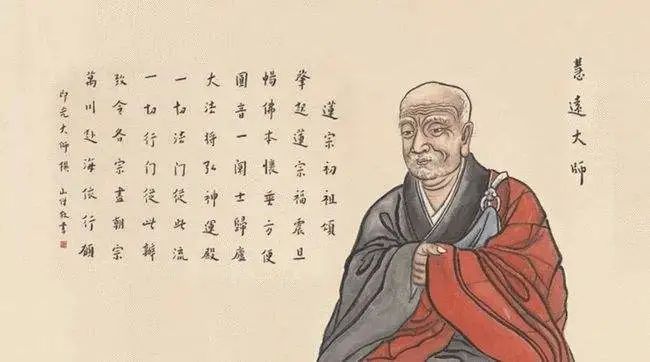 慧遠大師
蓮宗初祖頌
肇起蓮宗福震旦
暢佛本懷垂方便
圓音一闡士歸廬
大法將弘神運殿
一切法門從此流
一切行門從此辦
致令各宗盡朝宗
萬川赴海依行願
印光大師撰 山 敬書